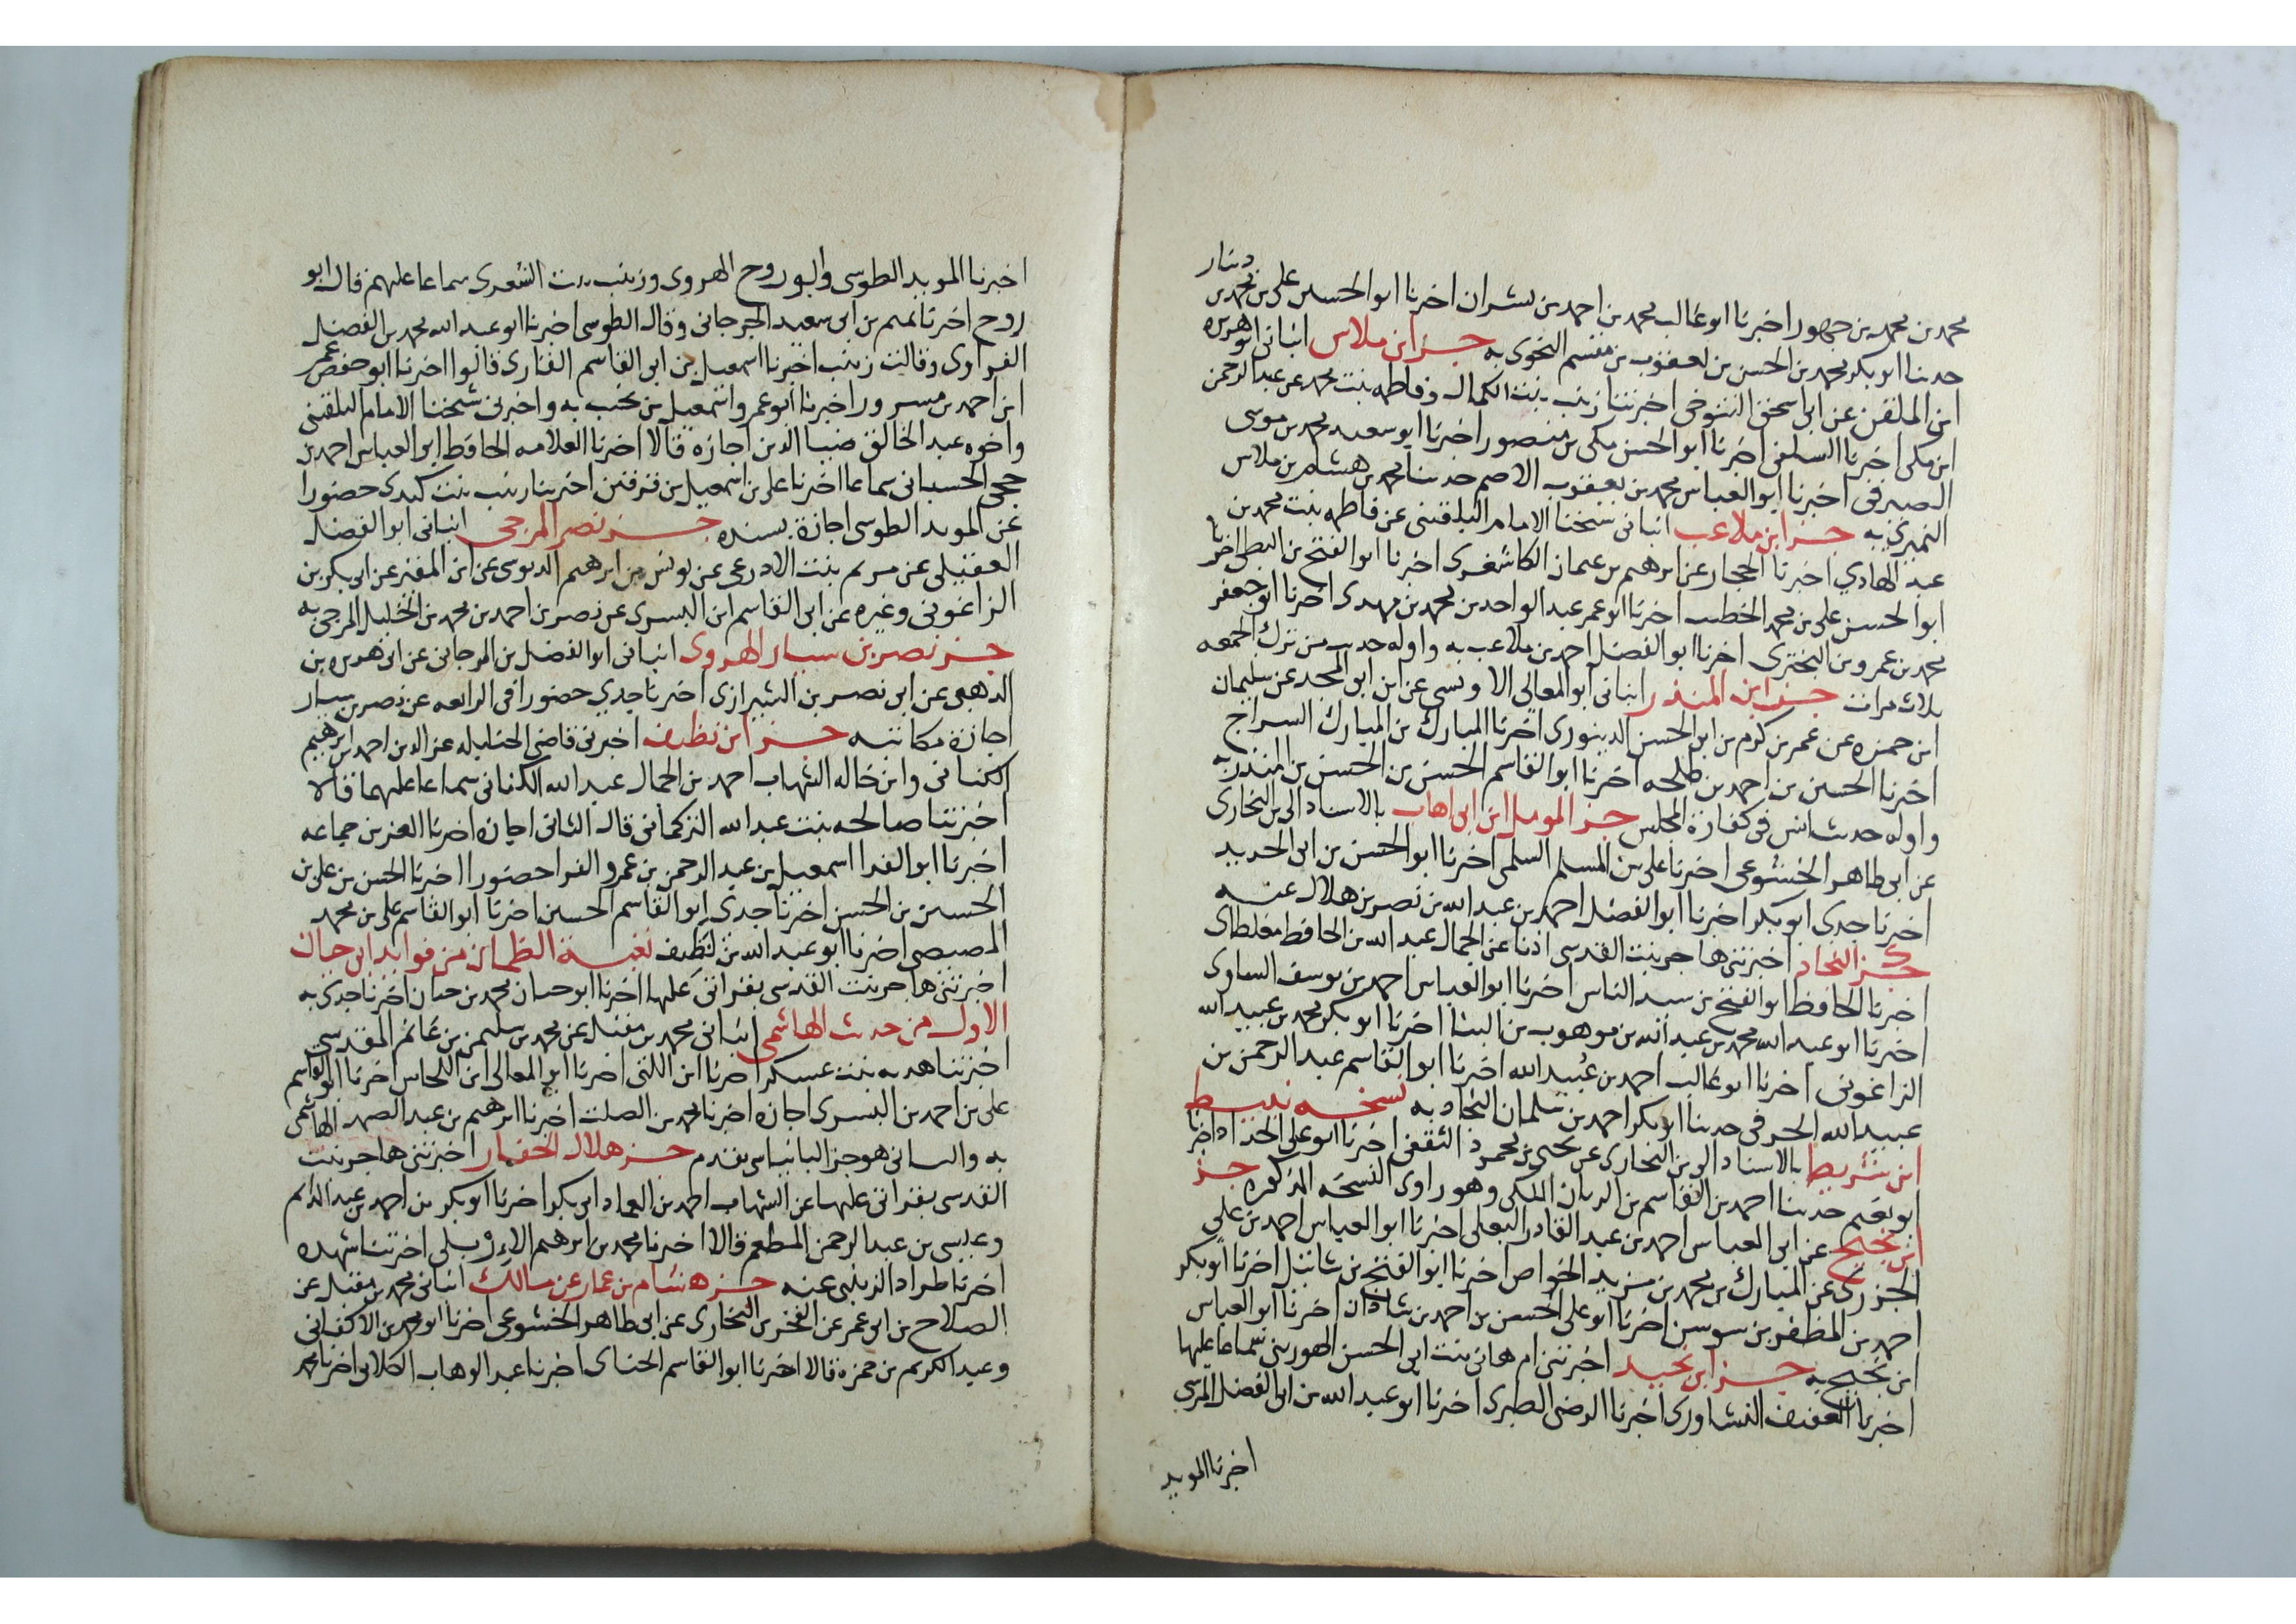 دينار
محمد بن محمد بن جهور اخبرنا ابو غالب محمد بن احمد بن بشران اخبرنا ابو الحسين علي بن محمد بن
حدثنا ابو بكر محمد بن الحسن بن يعقوب بن مقسم النحوى به جزء ابن ملاس انبانى ابو هريره
ابن الملقن عن ابى اسحق التنوخى اخبرتنا زينب بنت الكمال وفاطمه بنت محمد عن عبد الرحمن
ابن مكى اخبرنا السلفى اخبرنا ابو الحسن مكى بن منصور اخبرنا ابو سعيد محمد بن موسى
الصيرفى اخبرنا ابو العباس محمد بن يعقوب الاصم حدثنا محمد بن هشام بن ملاس
النميرى به جزء ابن ملاعب انبانى شيخنا الامام البلقينى عن فاطمه بنت محمد بن
عبد الهادي اخبرنا الحجار عن ابرهيم بن عثمان الكاشغرى اخبرنا ابو الفتح بن البطى اخبرنا
ابو الحسن على بن محمد الخطيب اخبرنا ابو عمر عبد الواحد بن محمد بن مهدى اخبرنا ابو جعفر
محمد بن عمرو بن البخترى اخبرنا ابو الفضل احمد بن ملاعب به واوله حديث من ترك الجمعه
ثلاث مرات جزء ابن المنذر انبانى ابو المعالى الاونسى عن ابن ابى المجد عن سليمان
ابن حمزه عن عمر بن كرم بن ابى الحسن الدينورى اخبرنا المبارك بن المبارك السراج
اخبرنا الحسين بن احمد بن طلحه اخبرنا ابو القاسم الحسن بن الحسن بن المنذر به
واوله حديث انس فى كفارة المجلس جزء المومل ابن ابى اهاب بالاسناد الى بن البخارى
عن ابى طاهر الخشوعى اخبرنا على بن المسلم السلمى اخبرنا ابو الحسن بن ابى الحديد
اخبرنا جدى ابو بكر اخبرنا ابو الفضل احمد بن عبد الله بن نصر بن هلال عنه
جزء النجاد اخبرتنى هاجر بنت القدسى اذنا عن الجمال عبد الله بن الحافظ مغلطاى
اخبرنا الحافظ ابو الفتح بن سيد الناس اخبرنا ابو العباس احمد بن يوسف الساوى
اخبرنا ابو عبد الله محمد بن عبد الله بن موهوب بن البنا اخبرنا ابو بكر محمد بن عبيد الله
الزاغونى اخبرنا ابو غالب احمد بن عبيد الله اخبرنا ابو القاسم عبد الرحمن بن
عبيد الله الحرفى حدثنا ابو بكر احمد بن سلمان النجاد به نسخه نبيط
ابن شريط بالاسناد الى بن البخارى عن يحيى بن محمود الثقفى اخبرنا ابو على الحداد اخبرنا
ابو نعيم حدثنا احمد بن القاسم بن الريان المكى وهو راوى النسخه المذكوره جزء
ابن نجيح عن ابى العباس احمد بن عبد القادر البعلى اخبرنا ابو العباس احمد بن على
الجزرى عن المبارك بن محمد بن مزيد الخواص اخبرنا ابو الفتح بن شاتيل اخبرنا ابو بكر
احمد بن المظفر بن سوسن اخبرنا ابو على الحسن بن احمد بن شاذان اخبرنا ابو العباس
ابن نجيح به جزء ابن نجيد اخبرتنى ام هانى بنت ابى الحسن الهورينى سماعا عليها
اخبرنا العفيف النشاورى اخبرنا الرضى الطبرى اخبرنا ابو عبد الله بن ابى الفضل المرسى
اخبرنا المويد
اخبرنا المويد الطوسى وابو روح الهروى وزينب بنت الشعرى سماعا عليهم قال ابو
روح اخبرنا تميم بن ابى سعيد الجرجانى وقال الطوسى اخبرنا ابو عبد الله محمد بن الفضل
الفراوى وقالت زينب اخبرنا اسمعيل بن ابى القاسم القارى قالوا اخبرنا ابو حفص عمر
ابن احمد بن مسرور اخبرنا ابو عمرو اسمعيل بن نجيد به واخبرنى شيخنا الامام البلقينى
واخوه عبد الخالق ضيا الدين اجازه قالا اخبرنا العلامه الحافظ ابو العباس احمد بن
حجى الحسبانى سماعا اخبرنا على بن اسمعيل بن قريش اخبرتنا زينب بنت كندى حضورا
عن المويد الطوسى اجازة بسنده جزء نصر المرجى انبانى ابو الفضل
العقيلى عن مريم بنت الاذرعى عن يونس بن ابرهيم الدبوسى عن ابن المقير عن ابى بكر بن
الزاغونى وغيره عن ابى القاسم ابن البسرى عن نصر بن احمد بن محمد بن الخليل المرجى به
جزء نصر بن سيار الهروى انبانى ابو الفضل بن المرجانى عن ابى هريره بن
الذهبى عن ابى نصر بن الشيرازى اخبرنا جدي حضورا فى الرابعه عن نصر بن سيار
اجازة مكاتبه جزء ابن نظيف اخبرنى قاضى الحنابله عز الدين احمد بن ابرهيم
الكنانى وابن خاله الشهاب احمد بن الجمال عبد الله الكنانى سماعا عليهما قالا
اخبرتنا صالحه بنت عبد الله التركمانى قال الثانى اجازه اخبرنا العز بن جماعه
اخبرنا ابو الفدا اسمعيل بن عبد الرحمن بن عمرو الفرا حضورا اخبرنا الحسن بن على بن
الحسين بن الحسن اخبرنا جدى ابو القاسم الحسين اخبرنا ابو القاسم على بن محمد
المصيصى اخبرنا ابو عبد الله بن نظيف نغبة الظمان من فوايد ابى حيان
اخبرتنى هاجر بنت القدسى بقراتى عليها اخبرنا ابو حيان محمد بن حيان اخبرنا جدى به
الاول من حديث الهاشمى انبانى محمد بن مقبل عن محمد بن سليمن بن غانم المقدسى
اخبرتنا هديه بنت عسكر اخبرنا ابن اللتى اخبرنا ابو المعالى ابن اللحاس اخبرنا ابو القاسم
على بن احمد بن البسرى اجازه اخبرنا محمد بن الصلت اخبرنا ابرهيم بن عبد الصمد الهاشمى
به والثانى هو جزء البانياسى تقدم جزء هلال الحفار اخبرتنى هاجر بنت
القدسى بقراتى عليها عن الشهاب احمد بن العماد ابى بكر اخبرنا ابو بكر بن احمد بن عبد الدايم
وعيسى بن عبد الرحمن المطعم قالا اخبرنا محمد بن ابرهيم الاربلى اخبرتنا شهده
اخبرنا طراد الزينبى عنه جزء هشام بن عمار عن مالك انبانى محمد بن مقبل عن
الصلاح بن ابى عمر عن الفخر بن البخارى عن ابى طاهر الخشوعى اخبرنا ابو محمد بن الاكفانى
وعبد الكريم بن حمزه قالا اخبرنا ابو القاسم الحناى اخبرنا عبد الوهاب الكلابى اخبرنا محمد